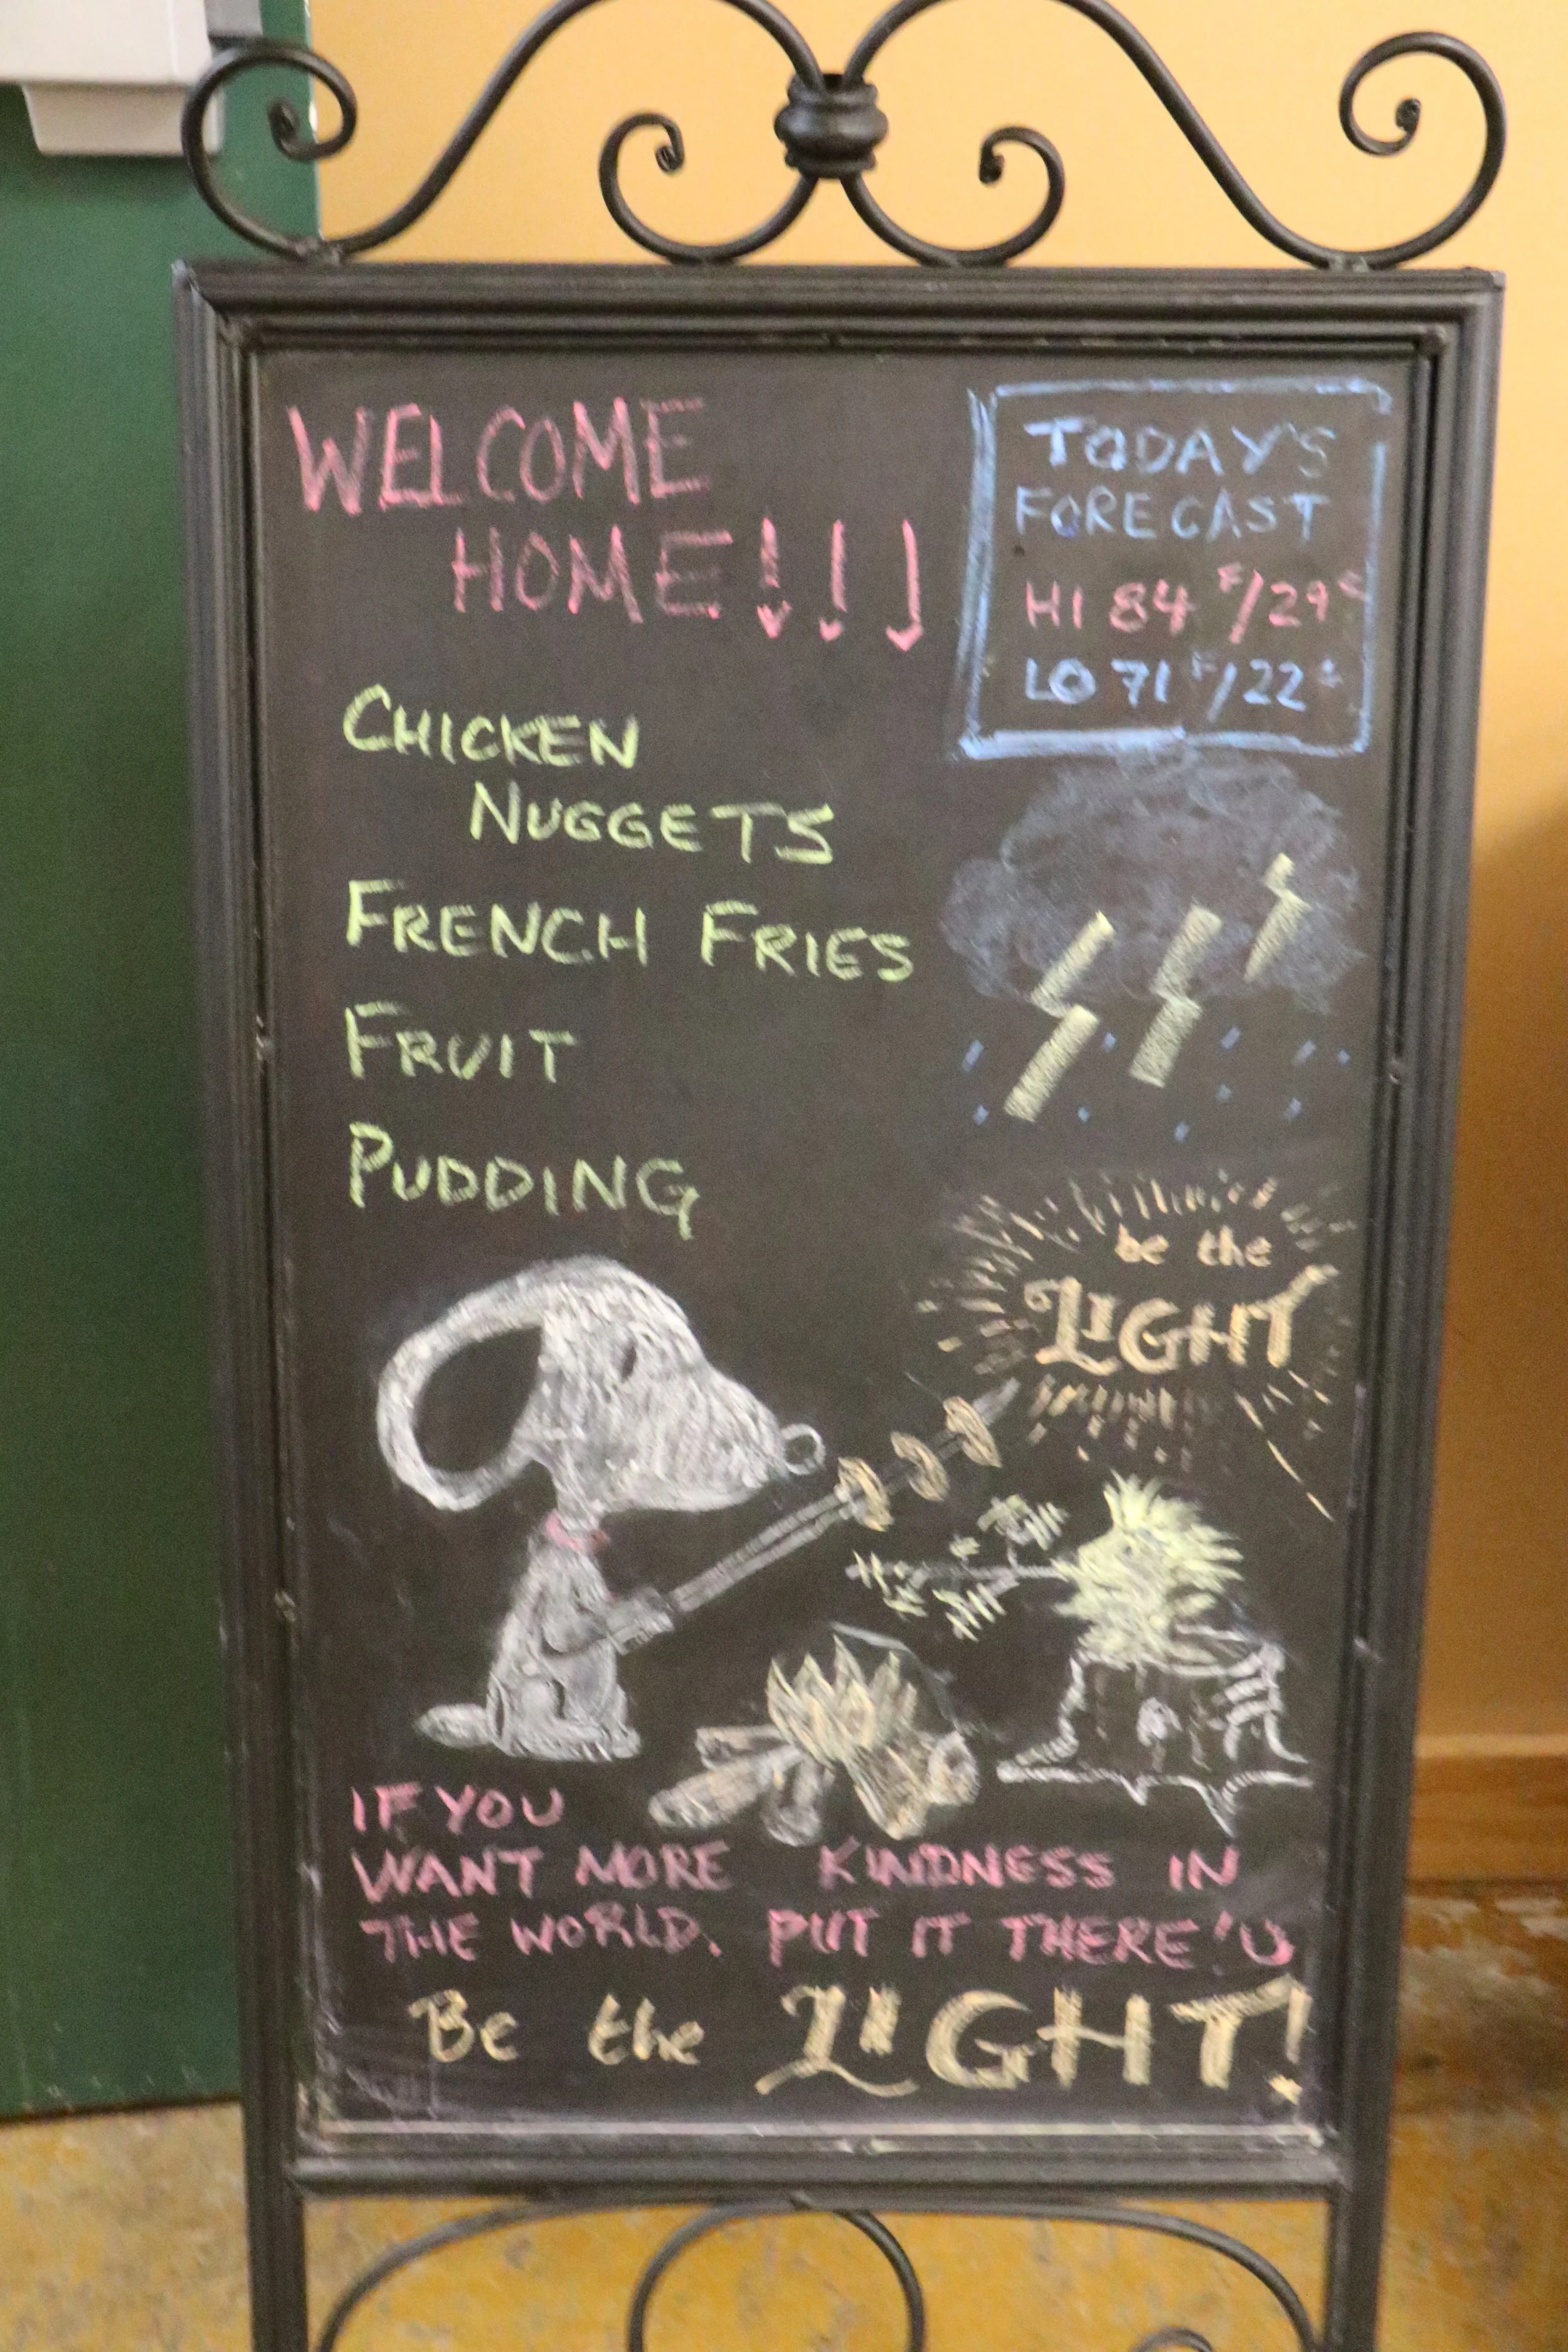 WELCOME
HOME!!!
TODAY'S
FORECAST
HI 84 F/29 C
LO 71 F/22 C
CHICKEN
NUGGETS
FRENCH FRIES
FRUIT
PUDDING
be the
LIGHT
IF YOU
WANT MORE KINDNESS IN
THE WORLD, PUT IT THERE!
Be the LIGHT!